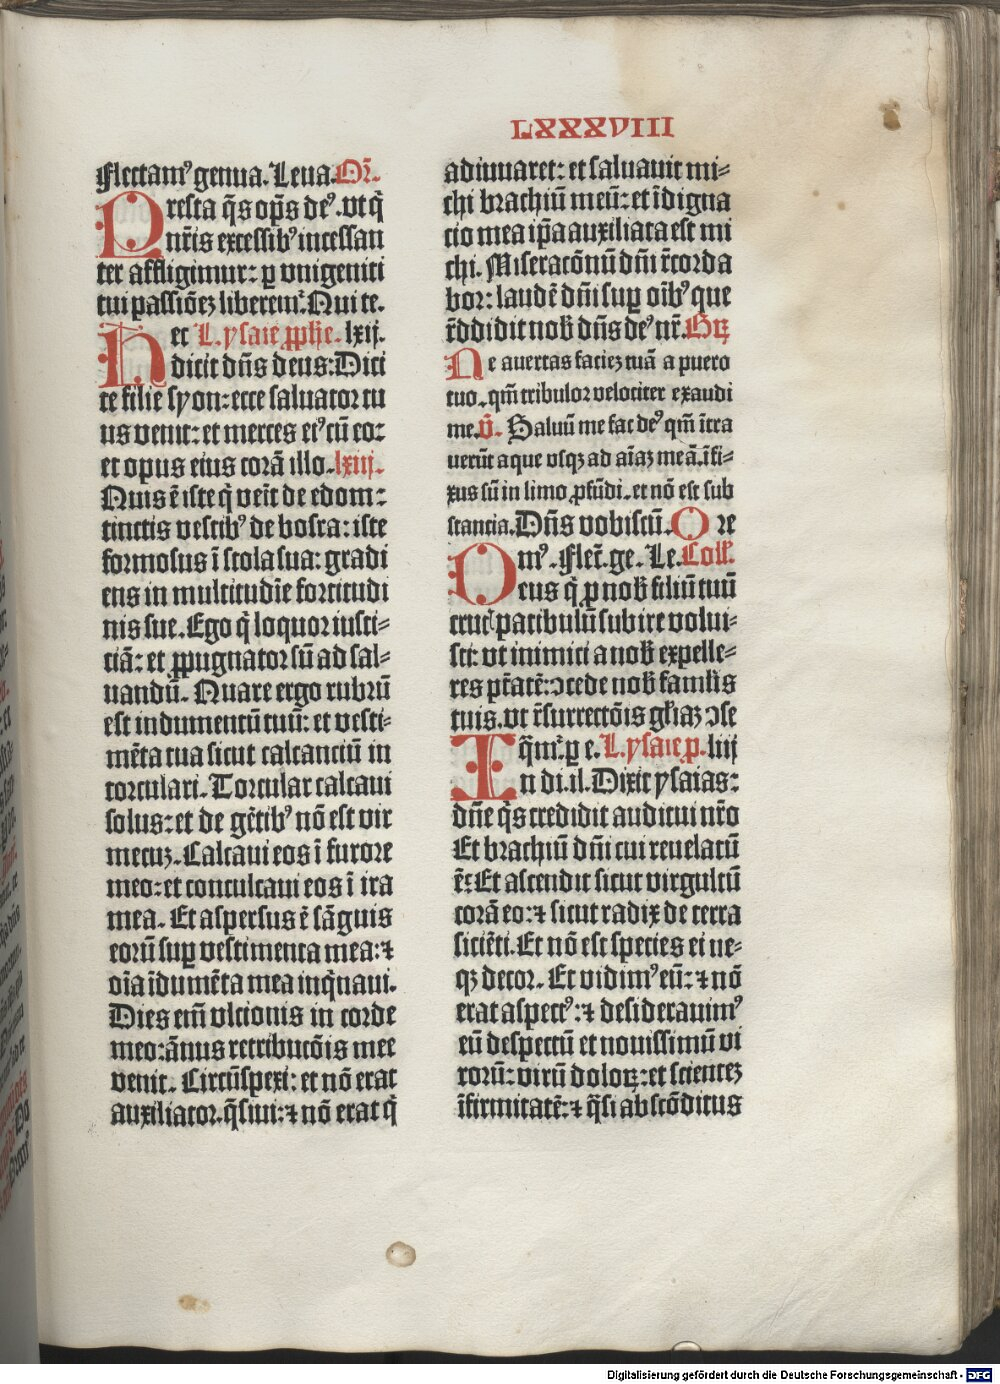 LXXXVIII
flectamꝰ genua. Leua. Or̄.
Presta q̄s op̄s deꝰ. vt q̇
nr̄is excessibꝰ incessan
ter affligimur: ꝑ vnigeniti
tui passiōez liberemur. Qui te.
Hec L. ysaie ꝓphe. lxij.
dicit dn̄s deus: Dici
te filie syon: ecce saluator tu
us venit: et merces eiꝰ cū eo:
et opus eius corā illo. lxiij.
Quis ē iste q̇ veīt de edom:
tinctis vestibꝰ de bosra: iste
formosus ī stola sua: gradi
ens in multitudīe fortitudi
nis sue. Ego q̇ loquor iusti⸗
tiā: et ꝓpugnator sū ad sal⸗
uandū. Quare ergo rubrū
est indumentū tuū: et vesti⸗
mēta tua sicut calcanciū in
torculari. Torcular calcaui
solus: et de gētibꝰ nō est vir
mecuz. Calcaui eos ī furore
meo: et conculcaui eos ī ira
mea. Et aspersus ē sāguis
eorū suꝑ vestimenta mea: ⁊
oīa īdumēta mea inq̇naui.
Dies em̄ vltionis in corde
meo: ānus retributōis mee
venit. Circūspexi: et nō erat
auxiliator. q̄siui: ⁊ nō erat q̇
adiuuaret: et saluauit mi⸗
chi brachiū meū: et īdigna
cio mea ip̄a auxiliata est mi
chi. Miseracōnū dn̄i r̄corda
bor: laudē dn̄i suꝑ oībꝰ que
r̄ddidit nob̄ dn̄s deꝰ nr̄. Gꝝ
Ne auertas faciez tuā a puero
tuo. qm̄ tribulor velociter exaudi
me. v̄. Saluū me fac deꝰ qm̄ ītra
uerūt aque vsqꝫ ad aīaz meā. īfi⸗
xus sū in limo ꝓfūdi. et nō est sub
stancia. Dn̄s vobiscū. Ore
mꝰ. Flect̄. ge. Le. Coll̄.
Deus q̇ ꝓ nob̄ filiū tuū
cruc̄ patibulū subire volui⸗
sti: vt inimici a nob̄ expelle⸗
res ptātē: ↄcede nob̄ famul̄is
tuis. vt r̄surrectōis gr̄iaz ↄse
q̄mur. ꝑ e. L. ysaie ꝓ. liij
In di. il. Dixit ysaias:
dn̄e q̇s credidit auditui nr̄o
Et brachiū dn̄i cui reuelatū
ē: Et ascendit sicut virgultū
corā eo: ⁊ sicut radix de terra
siciēti. Et nō est species ei ne⸗
qꝫ decor. Et vidimꝰ eū: ⁊ nō
erat aspectꝰ: ⁊ desiderauimꝰ
eū despectū et nouissimū vi
rorū: virū doloꝝ: et scientez
īfirmitatē: ⁊ q̄si abscōditus
Digitalisierung gefördert durch die Deutsche Forschungsgemeinschaft - DFG